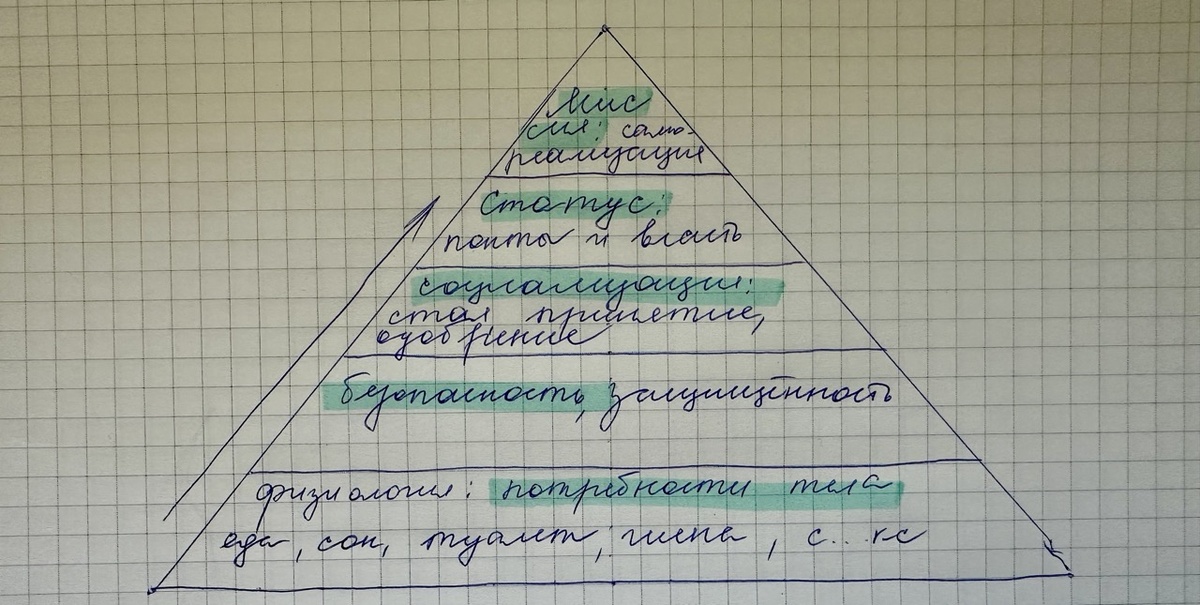 Мис
сия: само-
реализация
Статус:
понты и власть
социализация:
стая принятие,
одобрение
безопасность, защищённость
физиология: потребности тела
еда, сон, туалет, гигиена, с...кс